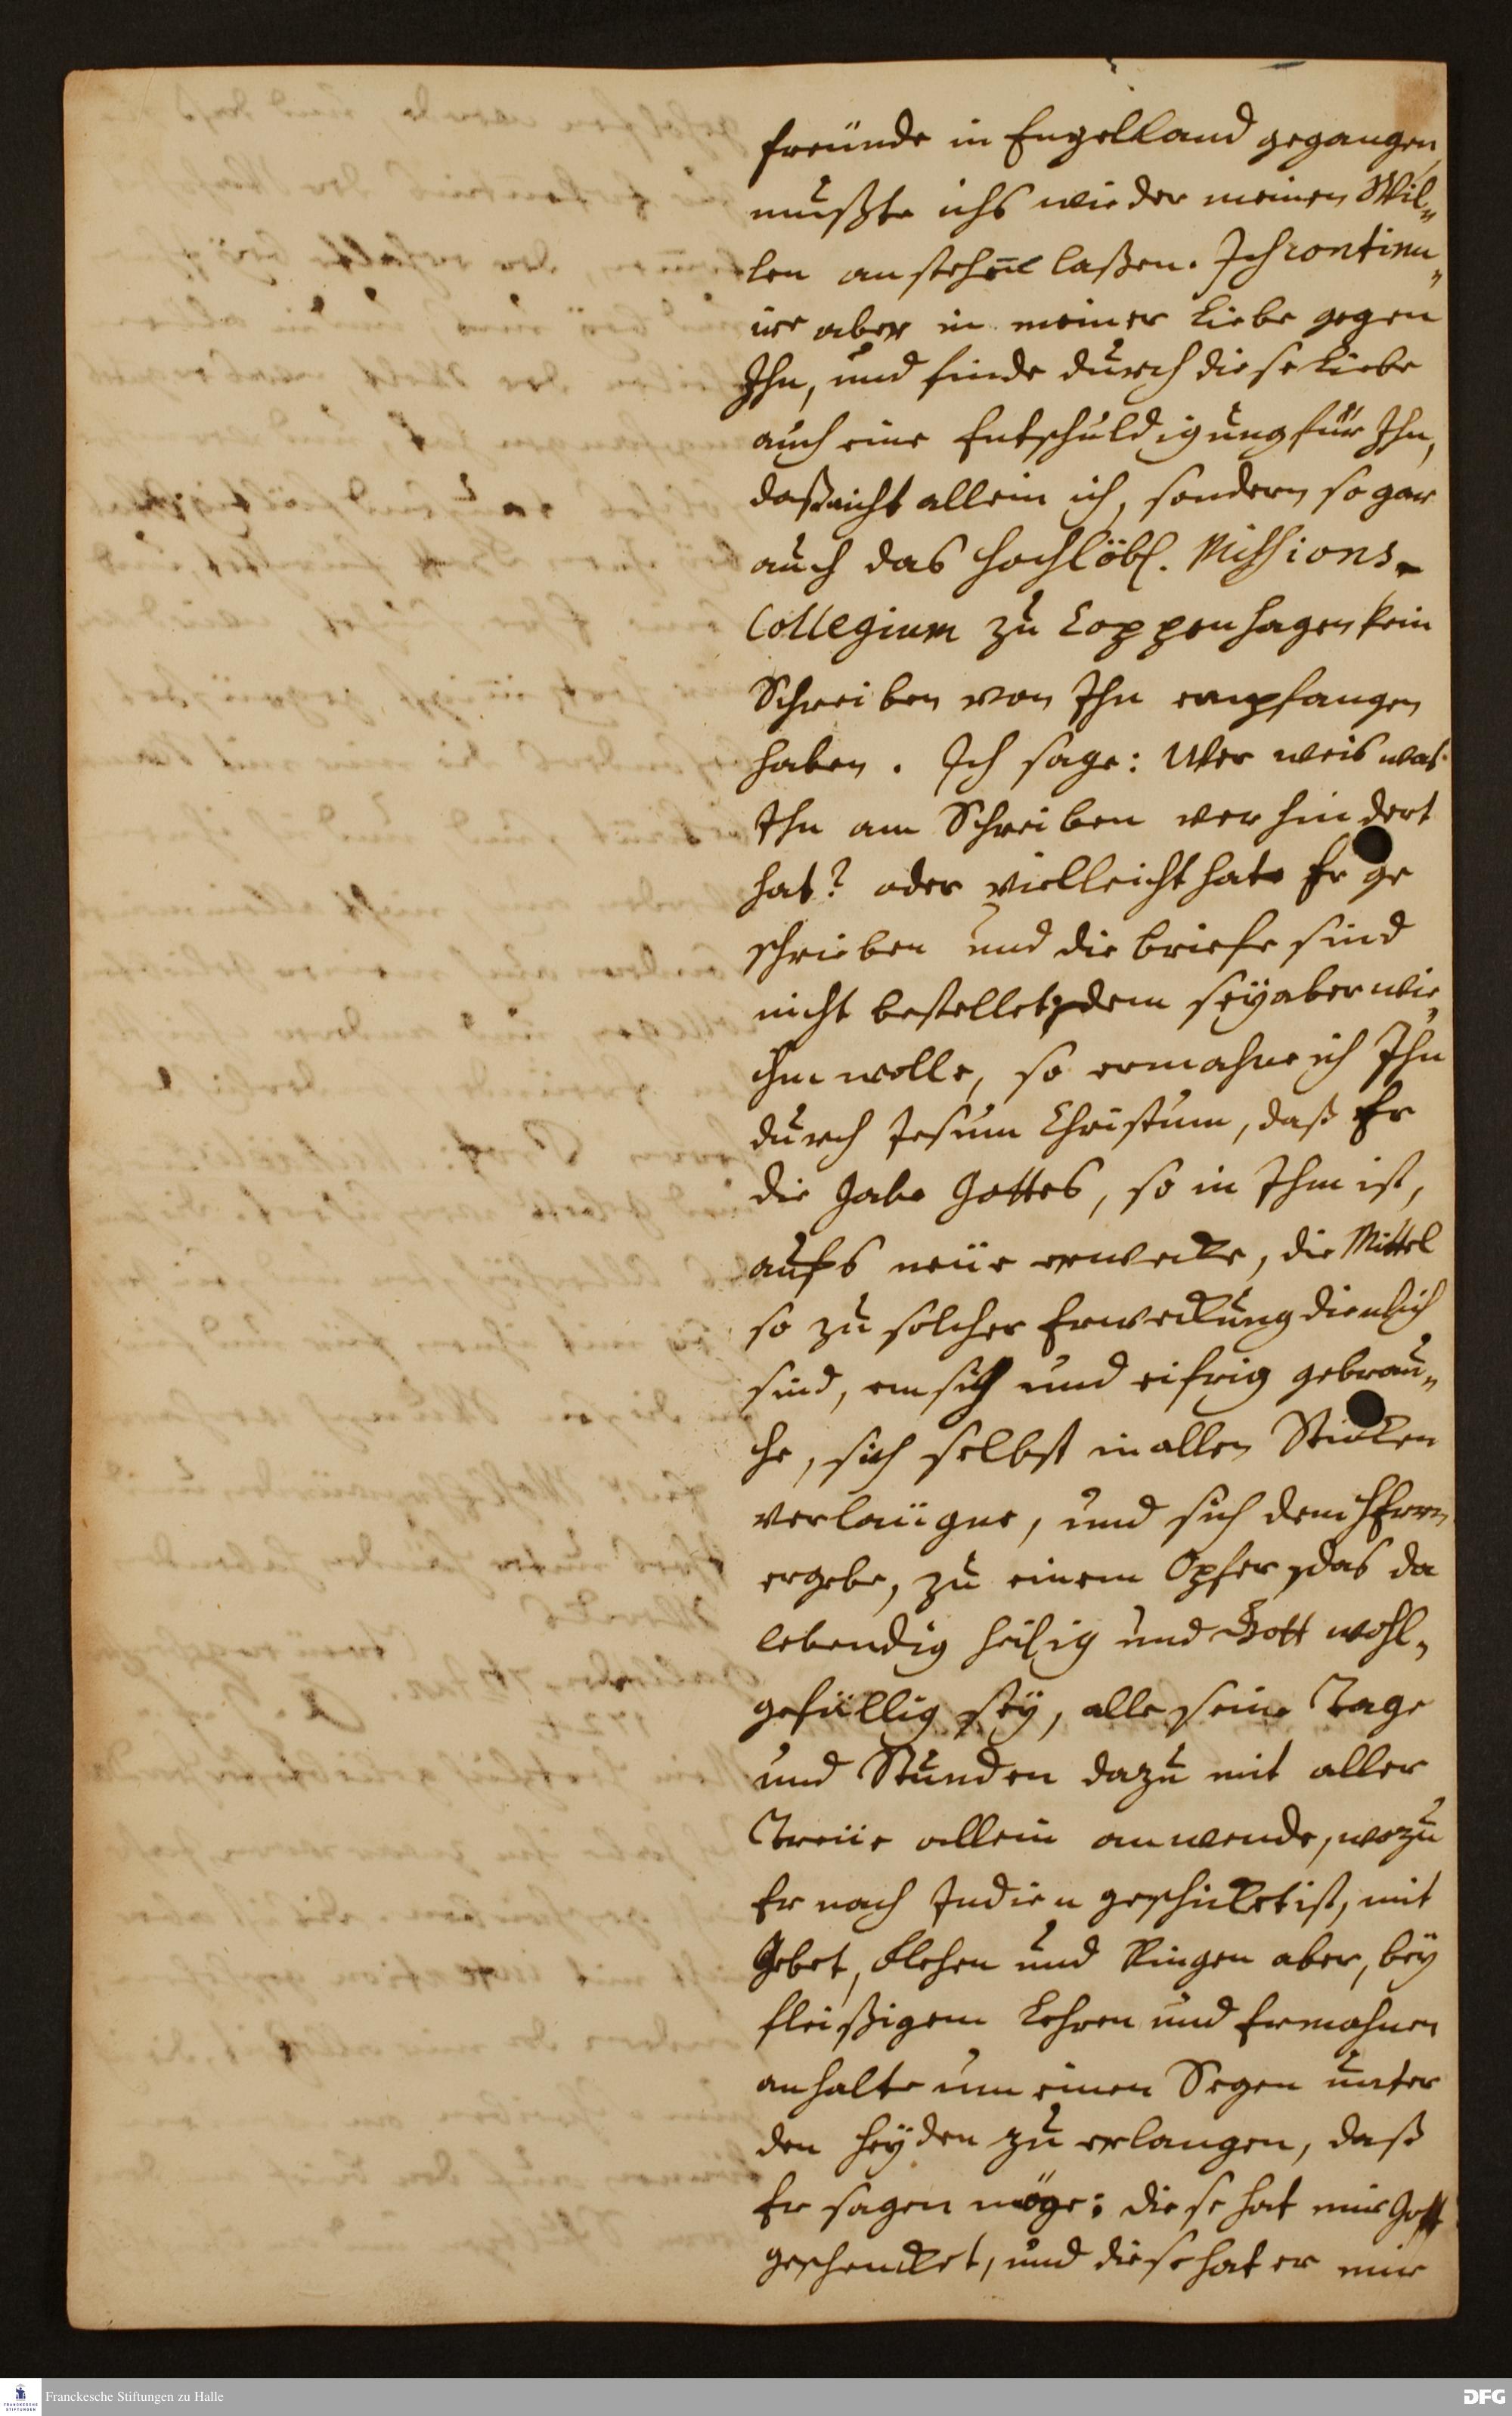 freünde in Engelland gegangen,
mußte ichs wieder meinen Wil„
len anstehen laßen. Ich continu„
ire aber in meiner Liebe gegen
Ihn, und finde durch diese Liebe
auch eine Entschuldigung für Ihn,
daß nicht allein ich, sondern sogar
auch das hochlöbl. Missions-
Collegium zu Coppenhagen kein
Schreiben von Ihn empfangen
haben. Ich sage: Wer weis was
Ihn am Schreiben verhindert
hat? oder vielleicht hate Er ge
schrieben und die briefe sind
nicht bestellet, dem seÿ aber wie„
ihm wolle, so ermahne ich Ihn
durch Jesum Christum, daß Er
die Gabe Gottes, so in Ihm ist,
aufs neüe erwecke, die Mittel
so zu solcher Erweckung dienlich
sind, emsich und eifrig gebrau„
che, sich selbst in allen Stücken
verlaügne, und sich dem HErrn
ergebe, zu einem Opfer, das da
lebendig heilig und Gott wohl„
gefällig seÿ, alle seine Tage
und Stunden dazu mit aller
Treüe allein anwende, wozu
Er nach Indien geschicket ist, mit
Gebet, Flehen und Ringen aber, beÿ
fleißigem Lehren und Ermahnen
anhalte um einen Segen unter
den Heÿden zu erlangen, daß
Er sagen möge: diese hat mir Gott
geschencket, und diese hat er mir
Franckesche Stiftungen zu Halle
DFG